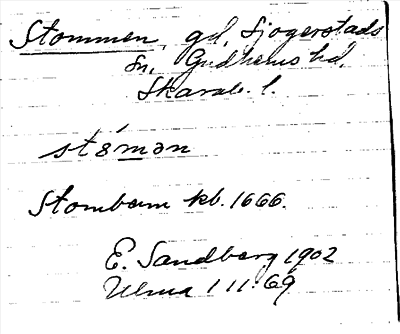 Stommen, gd, Sjogerstads
sn, Gudhems hd,
Skarab. l.
stómən
Stombem kb. 1666.
E. Sandberg 1902
Ulma 111:69